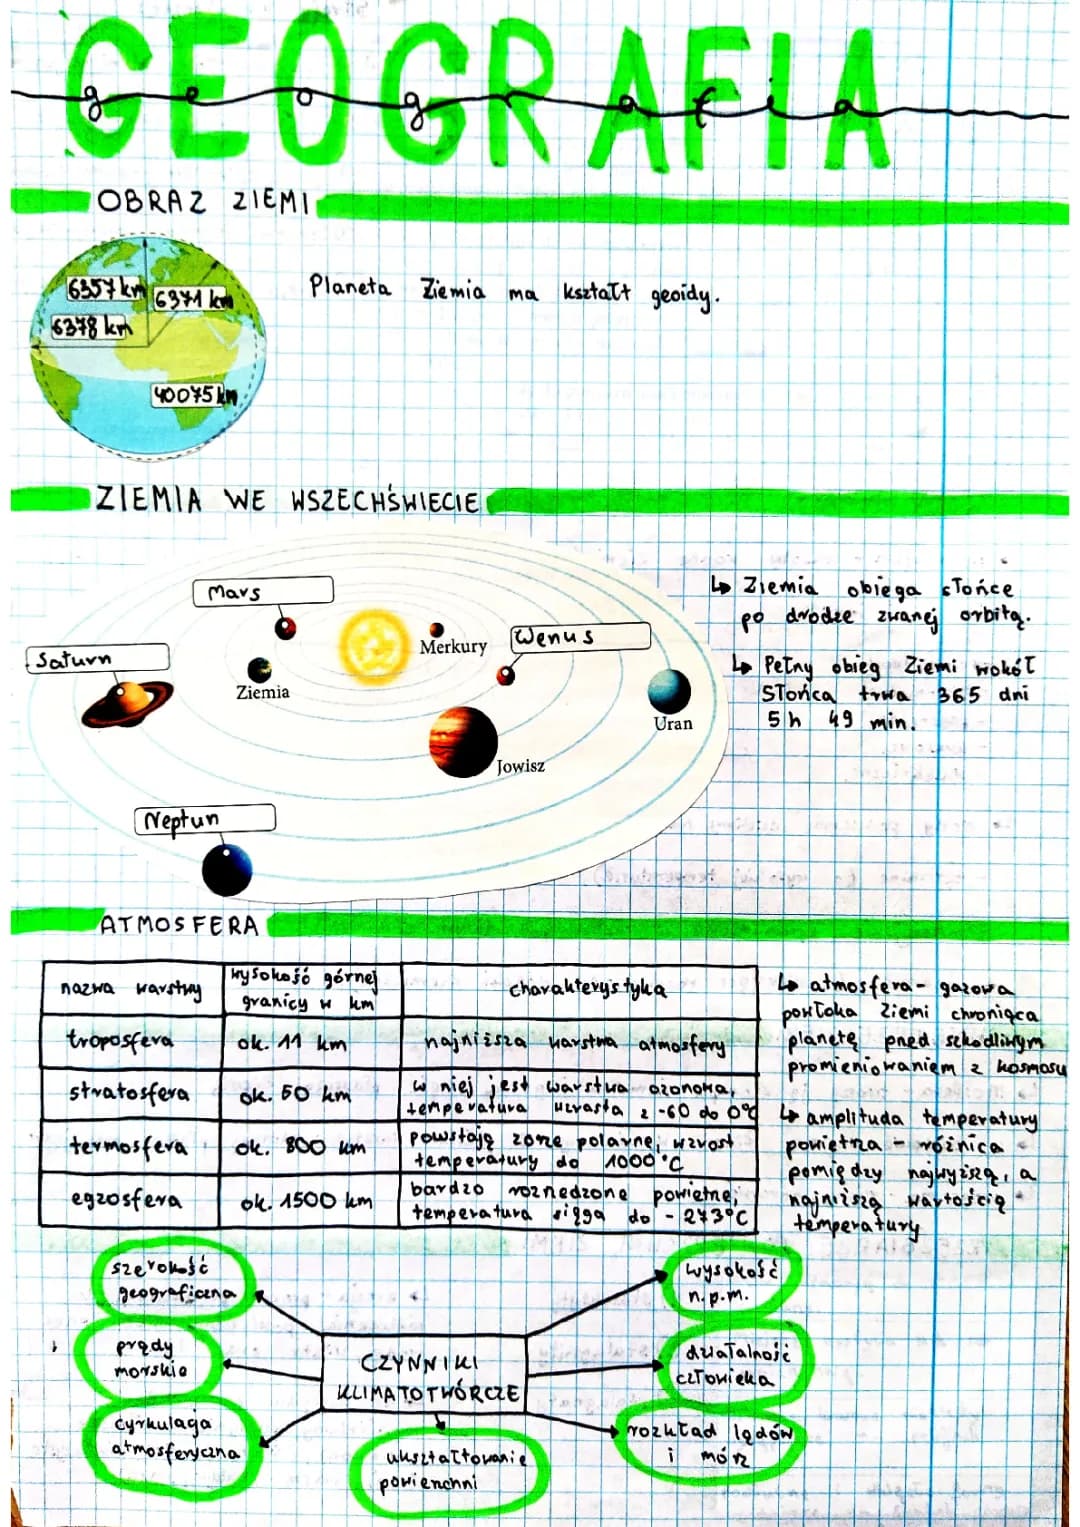 GEOGRAFIA
geografia
OBRAZ ZIEMI
6357 km
6371 km
6378 km
40075 km
Planeta Ziemia ma kształt geoidy.
ZIEMIA WE WSZECHŚWIECIE
Mars
Merkury
Wenus
Saturn
Ziemia
Uran
Jowisz
Neptun
↳ Ziemia obiega słońce
po drodze zwanej orbitą.
↳ Pełny obieg Ziemi wokół
Słońca trwa 365 dni
5 h 49 min.
ATMOSFERA
nazwa warstwy
wysokość górnej
granicy w km
charakterystyka
troposfera
ok. 11 km
najniższa warstwa atmosfery
stratosfera
ok. 50 km
w niej jest warstwa ozonowa,
temperatura wzrasta z -60 do 0°C
termosfera
ok. 800 km
powstają zorze polarne, wzrost
temperatury do 1000°C
egzosfera
ok. 1500 km
bardzo rozrzedzone powietrze,
temperatura sięga do -273°C
↳ atmosfera - gazowa
powłoka Ziemi chroniąca
planetę przed szkodliwym
promieniowaniem z kosmosu
↳ amplituda temperatury
powietrza - różnica
pomiędzy najwyższą, a
najniższą wartością
temperatury
szerokość
geograficzna
prądy
morskie
cyrkulacja
atmosferyczna
CZYNNIKI
KLIMATOTWÓRCZE
ukształtowanie
powierzchni
wysokość
n.p.m.
działalność
człowieka
rozkład lądów
i mórz